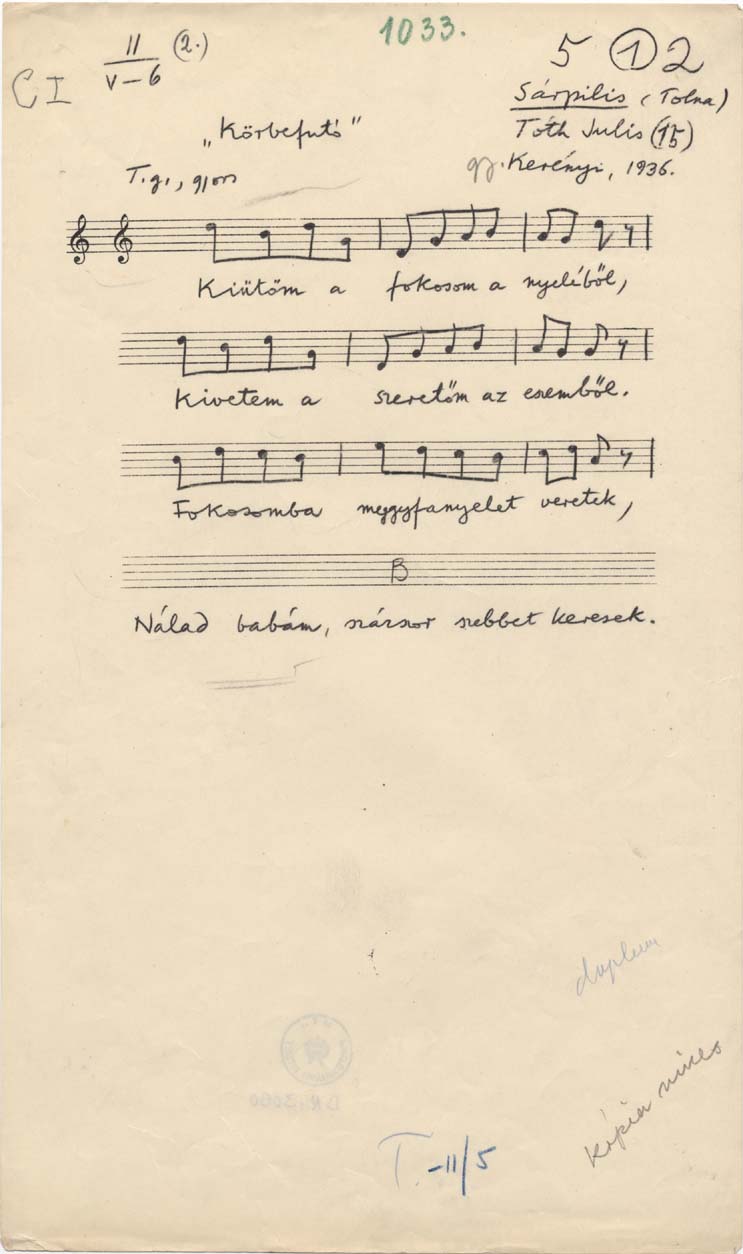 1033.
II (2.)
V-6
CI
5 ① 2
Sárpilis (Tolna)
Tóth Julis (15)
gy. Kerényi, 1936.
„Körbefutó"
T. gi., gyors
Kiütöm a fokosom a nyeléből,
Kivetem a szeretőm az eszemből.
Fokosomba meggyfanyelet veretek,
B
Nálad babám, százszor szebbet keresek.
5
duplum
Kópia nincs
T.-11/5